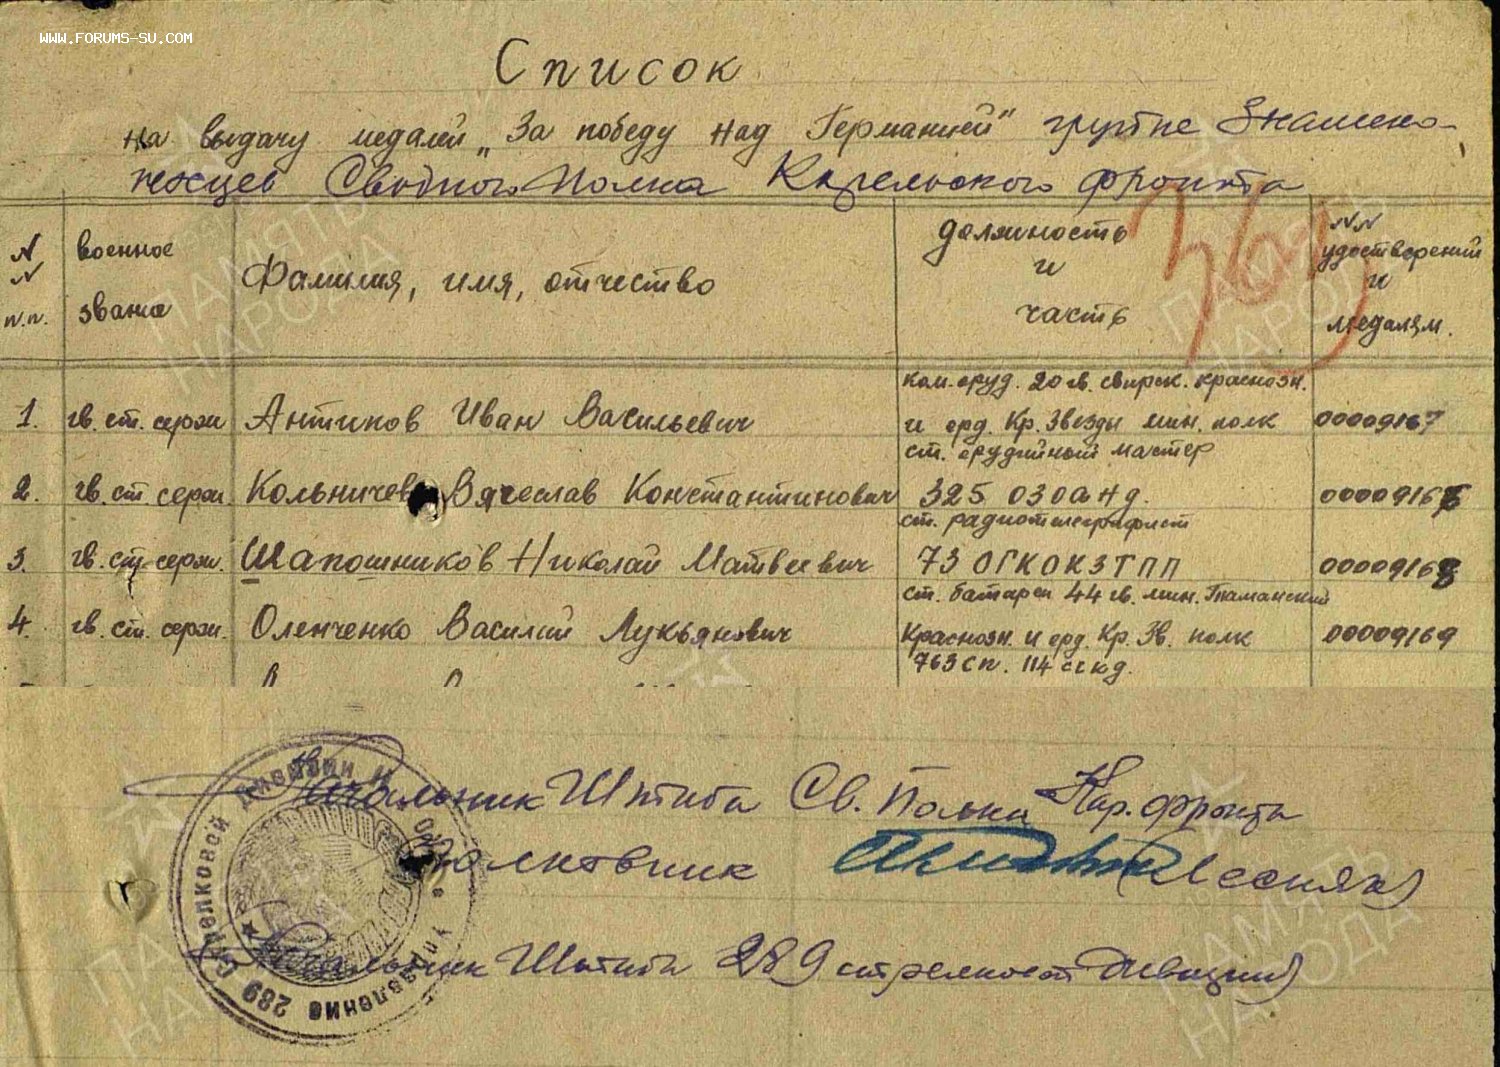 WWW.FORUMS-SU.COM
Список
На выдачу медалей „За победу над Германией" группе Знамено-
носцев Сводного Полка Карельского фронта
N N п.п.
военное звание
Фамилия, имя, отчество
должность и часть
NN удостоверений и медалям.
1. гв. ст. серж Антипов Иван Васильевич
ком. оруд. 20 гв. свирск. краснозн.
и орд. Кр. Звезды мин. полк
00009167
2. гв. ст. серж. Кольничев Вячеслав Константинович
ст. орудийный мастер
325 ОЗОАНд.
0000916
3. гв. ст. серж. Шапошников Николай Матвеевич
ст. радиотелеграфист
73 ОГКОКЗТПП
00009168
4. гв. ст. серж. Оленченко Василий Лукьянович
ст. батареи 44 гв. мин. Таманский
Краснозн. и орд. Кр. Зв. полк
00009169
763 сп. 114 сскд.
Начальник Штаба Св. Полка Кар. фронта
Полковник (Лесняк)
Начальник Штаба 289 стрелковой дивизии)
Управление 289 Стрелковой Дивизии
ПАМЯТЬ НАРОДА
ПАМЯТЬ НАРОДА
ПАМЯТЬ НАРОДА
ПАМЯТЬ НАРОДА